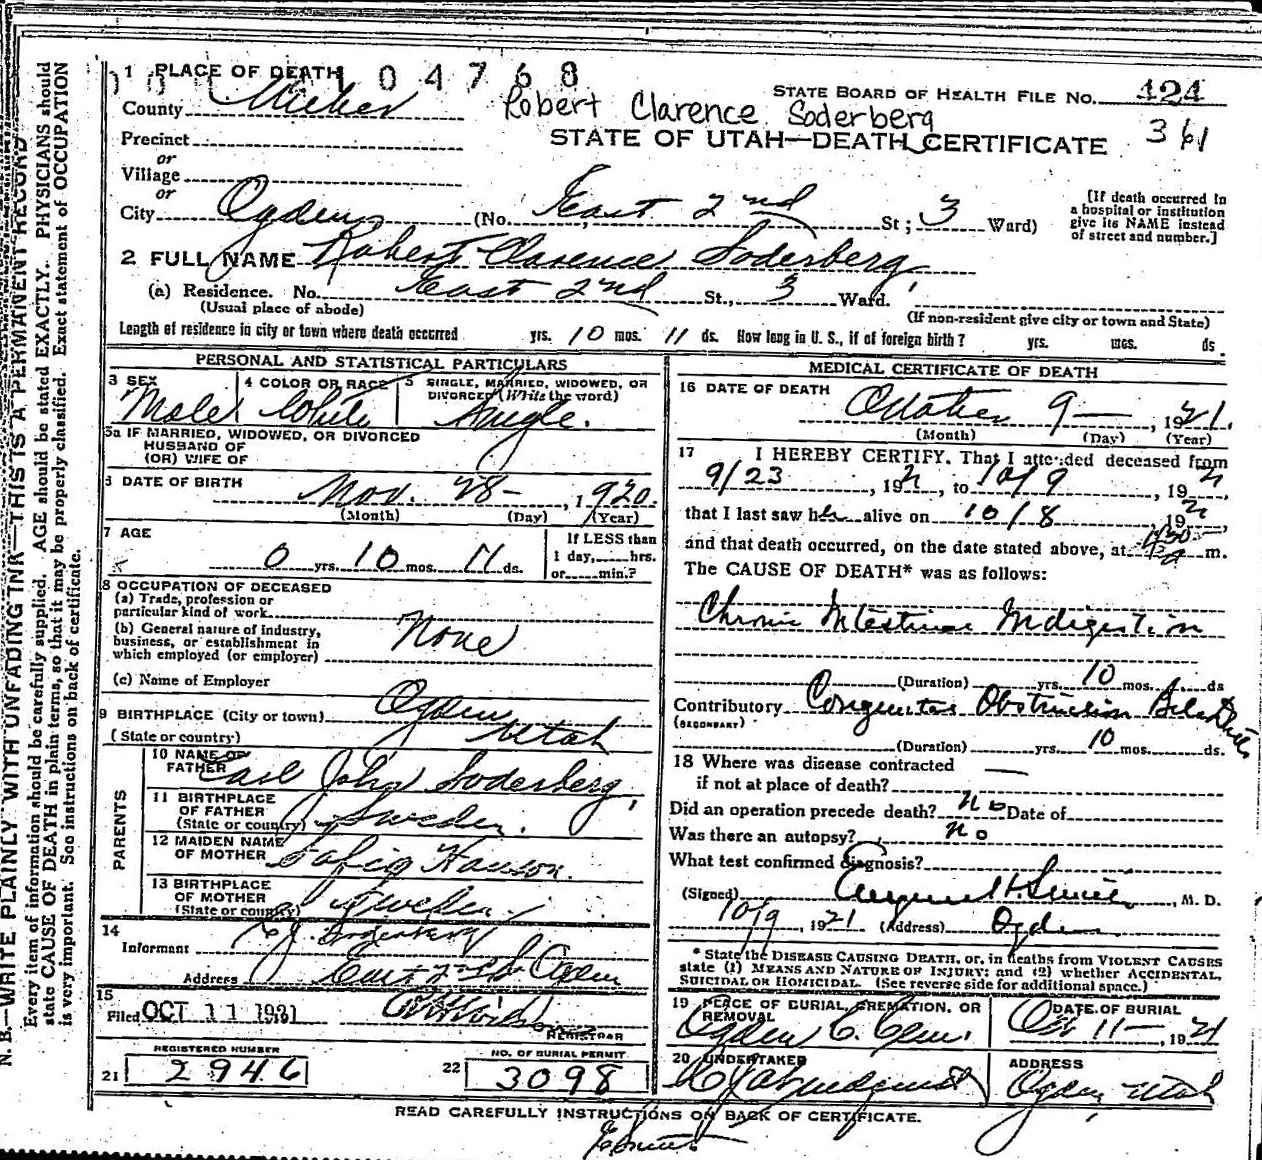 1 PLACE OF DEATH 104768
STATE BOARD OF HEALTH FILE No. 424
County Weber
Robert Clarence Soderberg
361
STATE OF UTAH—DEATH CERTIFICATE
Precinct
or
Village
or
City Ogden (No. East 2nd St; 3 Ward)
[If death occurred in
a hospital or institution
give its NAME instead
of street and number.]
2 FULL NAME Robert Clarence Soderberg
(a) Residence. No. East 2nd St., 3 Ward.
(Usual place of abode)
(If non-resident give city or town and State)
Length of residence in city or town where death occurred yrs. 10 mos. 11 ds. How long in U. S., if of foreign birth? yrs. mos. ds.
PERSONAL AND STATISTICAL PARTICULARS
3 SEX
Male
4 COLOR OR RACE
White
5 SINGLE, MARRIED, WIDOWED, OR
DIVORCED (Write the word)
Single.
5a IF MARRIED, WIDOWED, OR DIVORCED
HUSBAND OF
(OR) WIFE OF
6 DATE OF BIRTH
Nov. 28- , 1920.
(Month) (Day) (Year)
7 AGE
0 yrs. 10 mos. 11 ds.
If LESS than
1 day, hrs.
or min.?
8 OCCUPATION OF DECEASED
(a) Trade, profession or
particular kind of work
(b) General nature of industry,
business, or establishment in
which employed (or employer)
None
(c) Name of Employer
9 BIRTHPLACE (City or town) Ogden
(State or country) Utah
PARENTS
10 NAME OF
FATHER Carl John Soderberg,
11 BIRTHPLACE
OF FATHER
(State or country) Sweden.
12 MAIDEN NAME
OF MOTHER Hanson.
13 BIRTHPLACE
OF MOTHER
(State or country) Sweden.
14
Informant C. J. Soderberg
Address East 2nd St Ogden
15
Filed OCT 11 1921
REGISTRAR
REGISTERED NUMBER
21 2946
NO. OF BURIAL PERMIT
22 3098
MEDICAL CERTIFICATE OF DEATH
16 DATE OF DEATH
October 9— , 1921.
(Month) (Day) (Year)
17 I HEREBY CERTIFY, That I attended deceased from
9/23, 1921, to 10/9, 1921
that I last saw him alive on 10/8, 1921,
and that death occurred, on the date stated above, at m.
The CAUSE OF DEATH* was as follows:
Chronic Intestinal Indigestion
(Duration) yrs. 10 mos. ds
Contributory Congenital Obstruction Bile Ducts
(SECONDARY)
(Duration) yrs. 10 mos. ds.
18 Where was disease contracted
if not at place of death?
Did an operation precede death? no Date of
Was there an autopsy? no
What test confirmed diagnosis?
(Signed) Eugene H. Smith, M. D.
10/9, 1921 (Address) Ogden
* State the DISEASE CAUSING DEATH, or, in deaths from VIOLENT CAUSES
state (1) MEANS AND NATURE OF INJURY; and (2) whether ACCIDENTAL,
SUICIDAL OR HOMICIDAL. (See reverse side for additional space.)
19 PLACE OF BURIAL, CREMATION, OR
REMOVAL
Ogden C. Cem.
DATE OF BURIAL
Oct 11—, 1921
20 UNDERTAKER
ADDRESS
Ogden Utah
READ CAREFULLY INSTRUCTIONS ON BACK OF CERTIFICATE.
N. B.—WRITE PLAINLY WITH UNFADING INK—THIS IS A PERMANENT RECORD
Every item of information should be carefully supplied. AGE should be stated EXACTLY. PHYSICIANS should
state CAUSE OF DEATH in plain terms, so that it may be properly classified. Exact statement of OCCUPATION
is very important. See instructions on back of certificate.